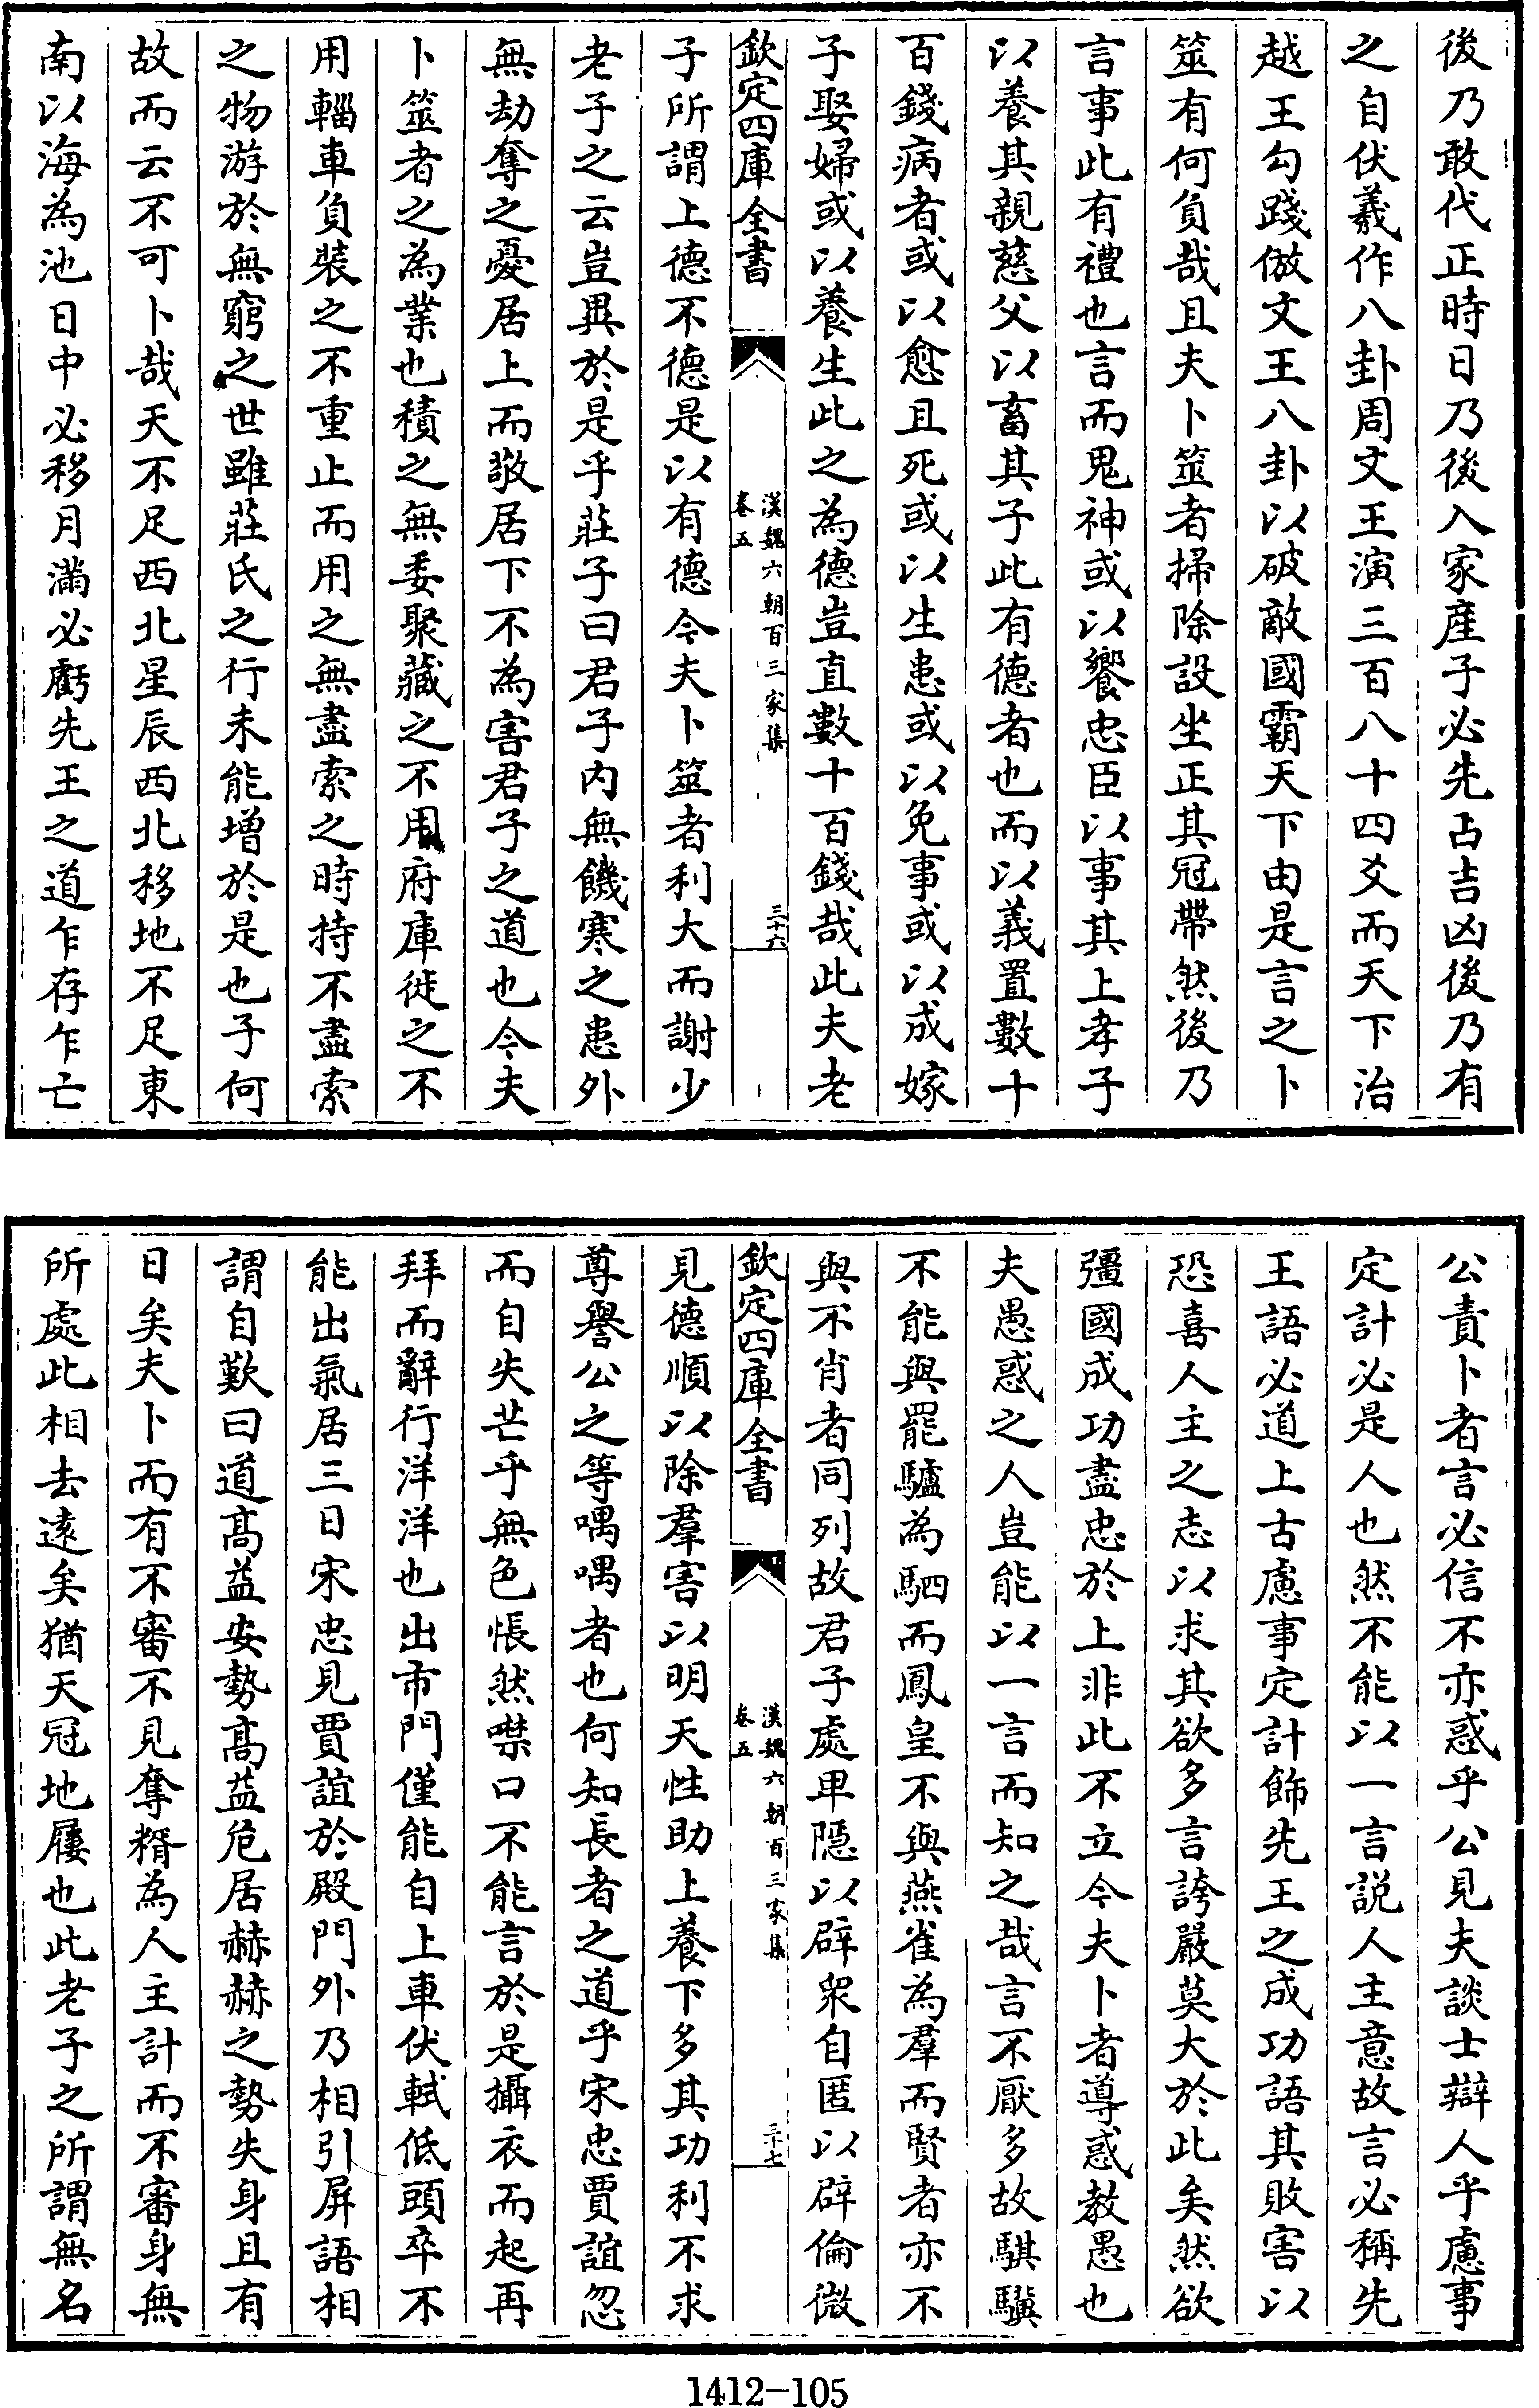 後乃敢代正時日乃後入家産子必先占吉凶後乃有
之自伏羲作八卦周文王演三百八十四爻而天下治
越王勾踐倣文王八卦以破敵國霸天下由是言之卜
筮有何負哉且夫卜筮者掃除設坐正其冠帶然後乃
言事此有禮也言而鬼神或以饗忠臣以事其上孝子
以養其親慈父以畜其子此有德者也而以義置數十
百錢病者或以愈且死或以生患或以免事或以成嫁
子娶婦或以養生此之為德豈直數十百錢哉此夫老
欽定四庫全書
漢魏六朝百三家集
卷五
三十六
子所謂上德不德是以有德今夫卜筮者利大而謝少
老子之云豈異於是乎莊子曰君子内無饑寒之患外
無劫奪之憂居上而敬居下不為害君子之道也今夫
卜筮者之為業也積之無委聚藏之不用府庫徙之不
用輜車負裝之不重止而用之無盡索之時持不盡索
之物游於無窮之世雖莊氏之行未能增於是也子何
故而云不可卜哉天不足西北星辰西北移地不足東
南以海為池日中必移月滿必虧先王之道乍存乍亡
公責卜者言必信不亦惑乎公見夫談士辯人乎慮事
定計必是人也然不能以一言説人主意故言必稱先
王語必道上古慮事定計飾先王之成功語其敗害以
恐喜人主之志以求其欲多言誇嚴莫大於此矣然欲
彊國成功盡忠於上非此不立今夫卜者導惑教愚也
夫愚惑之人豈能以一言而知之哉言不厭多故騏驥
不能與罷驢為駟而鳳皇不與燕雀為羣而賢者亦不
與不肖者同列故君子處卑隠以辟衆自匿以辟倫微
欽定四庫全書
漢魏六朝百三家集
卷五
三十七
見德順以除羣害以明天性助上養下多其功利不求
尊譽公之等喁喁者也何知長者之道乎宋忠賈誼忽
而自失芒乎無色悵然噤口不能言於是攝衣而起再
拜而辭行洋洋也出市門僅能自上車伏軾低頭卒不
能出氣居三日宋忠見賈誼於殿門外乃相引屏語相
謂自歎曰道髙益安勢髙益危居赫赫之勢失身且有
日矣夫卜而有不審不見奪糈為人主計而不審身無
所處此相去逺矣猶天冠地屨也此老子之所謂無名
1412-105